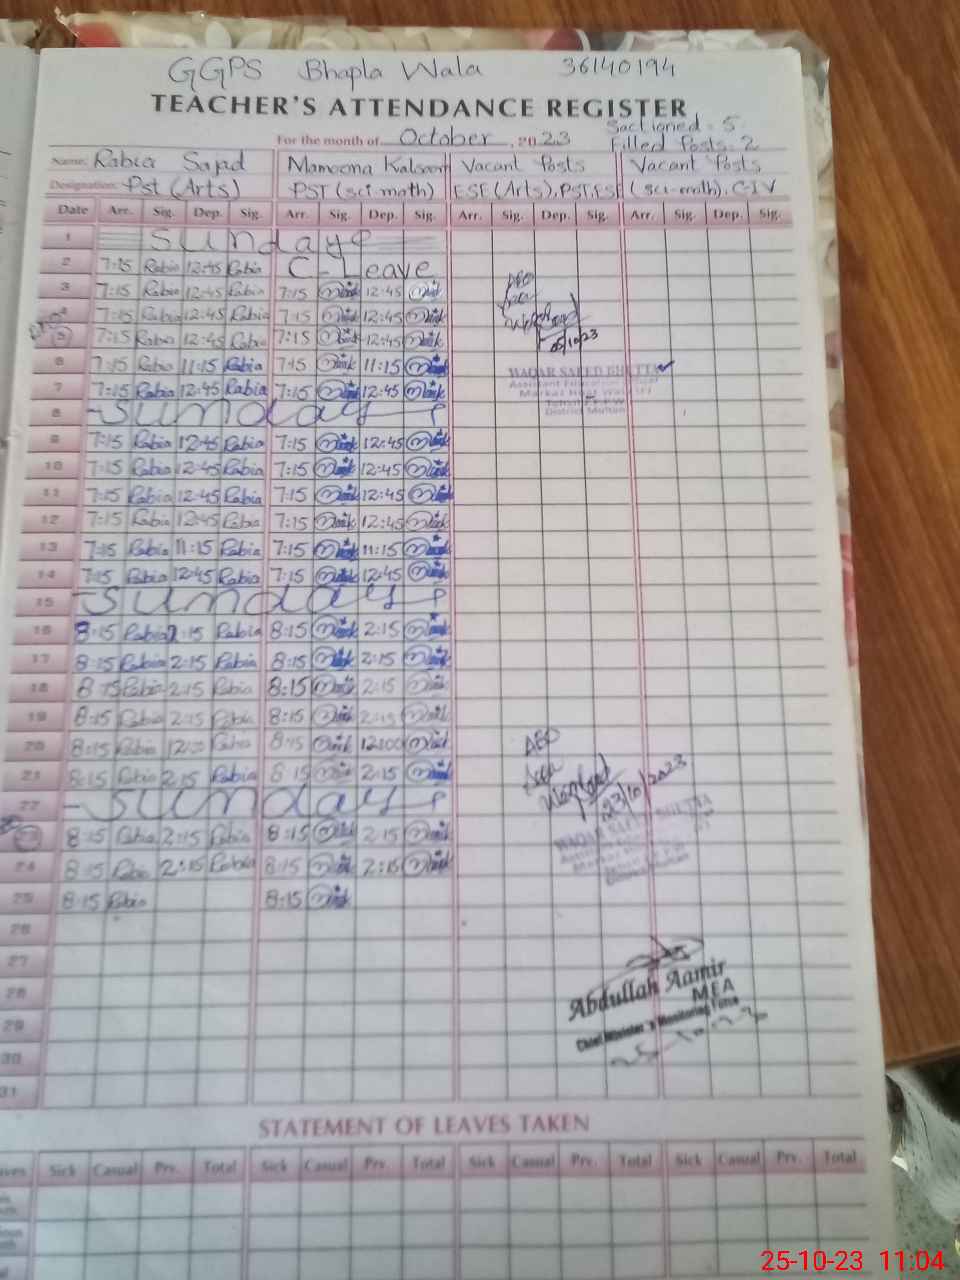 GGPS Bhapla Wala 36140194
TEACHER'S ATTENDANCE REGISTER
Sactioned = 5
For the month of October, 2023 Filled Posts = 2
Name: Rabia Sajad Mamoona Kalsoom Vacant Posts Vacant Posts
Designation: Pst (Arts) PST (sci-math) ESE (Arts), PST, ESE (sci-math), C-IV
Date Arr. Sig. Dep. Sig. Arr. Sig. Dep. Sig. Arr. Sig. Dep. Sig. Arr. Sig. Dep. Sig.
1 Sunday
2 7:15 Rabia 12:45 Rabia C-Leave
3 7:15 Rabia 12:45 Rabia 7:15 12:45
4 7:15 Rabia 12:45 Rabia 7:15 12:45
5 7:15 Rabia 12:45 Rabia 7:15 12:45 05/10/23
6 7:15 Rabia 11:15 Rabia 7:15 11:15 WAQAR SAEED BHUTTA
7 7:15 Rabia 12:45 Rabia 7:15 12:45 Assistant Education Officer
8 Sunday District Multan
9 7:15 Rabia 12:45 Rabia 7:15 12:45
10 7:15 Rabia 12:45 Rabia 7:15 12:45
11 7:15 Rabia 12:45 Rabia 7:15 12:45
12 7:15 Rabia 12:45 Rabia 7:15 12:45
13 7:15 Rabia 11:15 Rabia 7:15 11:15
14 7:15 Rabia 12:45 Rabia 7:15 12:45
15 Sunday
16 8:15 Rabia 2:15 Rabia 8:15 2:15
17 8:15 Rabia 2:15 Rabia 8:15 2:15
18 8:15 Rabia 2:15 Rabia 8:15 2:15
19 8:15 Rabia 2:15 Rabia 8:15 2:15
20 8:15 Rabia 12:00 Rabia 8:15 12:00 AEO
21 8:15 Rabia 2:15 Rabia 8:15 2:15
22 Sunday 23/10/2023
23 8:15 Rabia 2:15 Rabia 8:15 2:15 WAQAR SAEED BHUTTA
24 8:15 Rabia 2:15 Rabia 8:15 2:15
25 8:15 Rabia 8:15
26
27
28 Abdullah Aamir
MEA
29 Chief Minister's Monitoring Force
30
31
STATEMENT OF LEAVES TAKEN
Sick Casual Prv. Total Sick Casual Prv. Total Sick Casual Prv. Total Sick Casual Prv. Total
25-10-23 11:04